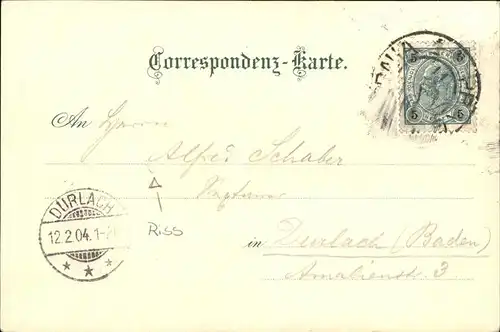 Correspondenz-Karte.
5 5
5 5
An Herrn
Alfred Schaber
DURLACH
12.2.04.1-
Riss
in Durlach (Baden)
Amalienstr. 3